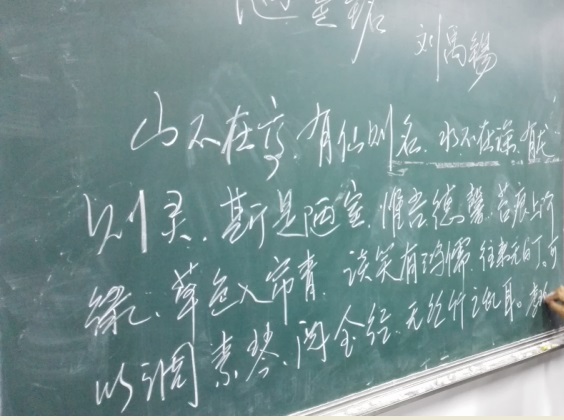 陋室铭
刘禹锡
山不在高,有仙则名.水不在深,有龙
则灵.斯是陋室,惟吾德馨.苔痕上阶
绿,草色入帘青.谈笑有鸿儒,往来无白丁.可
以调素琴,阅金经.无丝竹之乱耳。